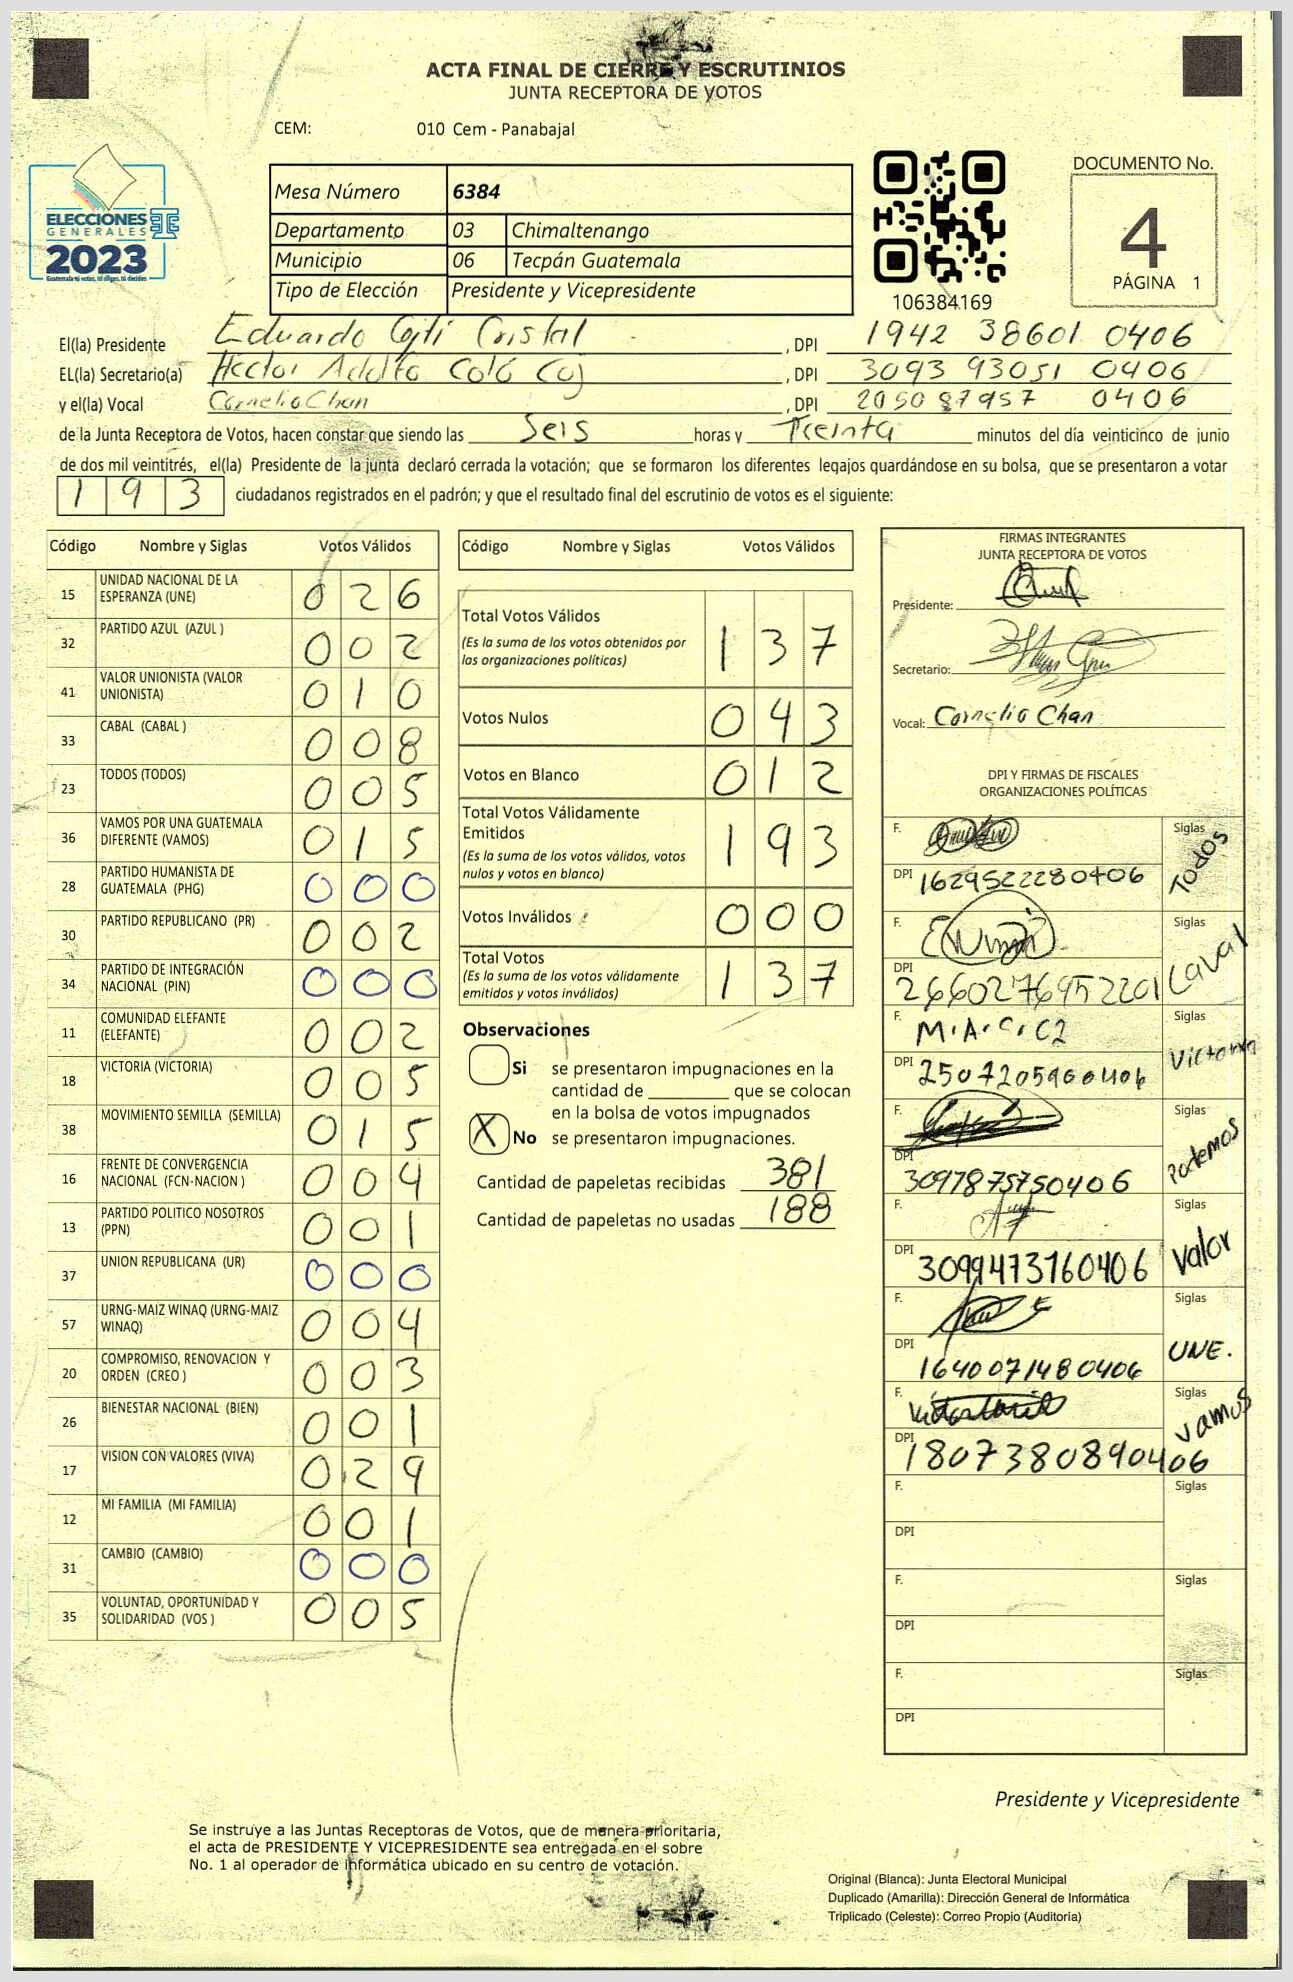 ACTA FINAL DE CIERRE Y ESCRUTINIOS
JUNTA RECEPTORA DE VOTOS
CEM: 010 Cem - Panabajal
ELECCIONES
GENERALES
2023
Guatemala tú votas, tú eliges, tú decides
Mesa Número 6384
Departamento 03 Chimaltenango
Municipio 06 Tecpán Guatemala
Tipo de Elección Presidente y Vicepresidente
106384169
DOCUMENTO No.
4
PÁGINA 1
El(la) Presidente Eduardo Cojtí Cristal , DPI 1942 38601 0406
EL(la) Secretario(a) Hector Adolfo Coló Coj , DPI 3093 93051 0406
y el(la) Vocal Cornelio Chan , DPI 205087957 0406
de la Junta Receptora de Votos, hacen constar que siendo las Seis horas y Treinta minutos del día veinticinco de junio
de dos mil veintitrés, el(la) Presidente de la junta declaró cerrada la votación; que se formaron los diferentes legajos quardándose en su bolsa, que se presentaron a votar
193 ciudadanos registrados en el padrón; y que el resultado final del escrutinio de votos es el siguiente:
Código Nombre y Siglas Votos Válidos
15 UNIDAD NACIONAL DE LA ESPERANZA (UNE) 026
32 PARTIDO AZUL (AZUL ) 002
41 VALOR UNIONISTA (VALOR UNIONISTA) 010
33 CABAL (CABAL ) 008
23 TODOS (TODOS) 005
36 VAMOS POR UNA GUATEMALA DIFERENTE (VAMOS) 015
28 PARTIDO HUMANISTA DE GUATEMALA (PHG) 000
30 PARTIDO REPUBLICANO (PR) 002
34 PARTIDO DE INTEGRACIÓN NACIONAL (PIN) 000
11 COMUNIDAD ELEFANTE (ELEFANTE) 002
18 VICTORIA (VICTORIA) 005
38 MOVIMIENTO SEMILLA (SEMILLA) 015
16 FRENTE DE CONVERGENCIA NACIONAL (FCN-NACION ) 004
13 PARTIDO POLITICO NOSOTROS (PPN) 001
37 UNION REPUBLICANA (UR) 000
57 URNG-MAIZ WINAQ (URNG-MAIZ WINAQ) 004
20 COMPROMISO, RENOVACION Y ORDEN (CREO ) 003
26 BIENESTAR NACIONAL (BIEN) 001
17 VISION CON VALORES (VIVA) 029
12 MI FAMILIA (MI FAMILIA) 001
31 CAMBIO (CAMBIO) 000
35 VOLUNTAD, OPORTUNIDAD Y SOLIDARIDAD (VOS ) 005
Código Nombre y Siglas Votos Válidos
Total Votos Válidos 137
(Es la suma de los votos obtenidos por las organizaciones políticas)
Votos Nulos 043
Votos en Blanco 012
Total Votos Válidamente Emitidos 193
(Es la suma de los votos válidos, votos nulos y votos en blanco)
Votos Inválidos 000
Total Votos 137
(Es la suma de los votos válidamente emitidos y votos inválidos)
Observaciones
Si se presentaron impugnaciones en la
cantidad de ________ que se colocan
en la bolsa de votos impugnados
X No se presentaron impugnaciones.
Cantidad de papeletas recibidas 381
Cantidad de papeletas no usadas 188
FIRMAS INTEGRANTES
JUNTA RECEPTORA DE VOTOS
Presidente:
Secretario:
Vocal: Cornelio Chan
DPI Y FIRMAS DE FISCALES
ORGANIZACIONES POLÍTICAS
F. Siglas Todos
DPI 1629522280406
F. Siglas
DPI 2660276952201
F. M.A.C.C2 Siglas Victoria
DPI 2507205960406
F. Siglas Podemos
DPI 3097875750406
F. Siglas Valor
DPI 3099473160406
F. Siglas UNE.
DPI 1640071480406
F. Siglas Vamos
DPI 1807380890406
F. Siglas
DPI
F. Siglas
DPI
F. Siglas
DPI
Presidente y Vicepresidente
Se instruye a las Juntas Receptoras de Votos, que de manera prioritaria,
el acta de PRESIDENTE Y VICEPRESIDENTE sea entregada en el sobre
No. 1 al operador de informática ubicado en su centro de votación.
Original (Blanca): Junta Electoral Municipal
Duplicado (Amarilla): Dirección General de Informática
Triplicado (Celeste): Correo Propio (Auditoría)